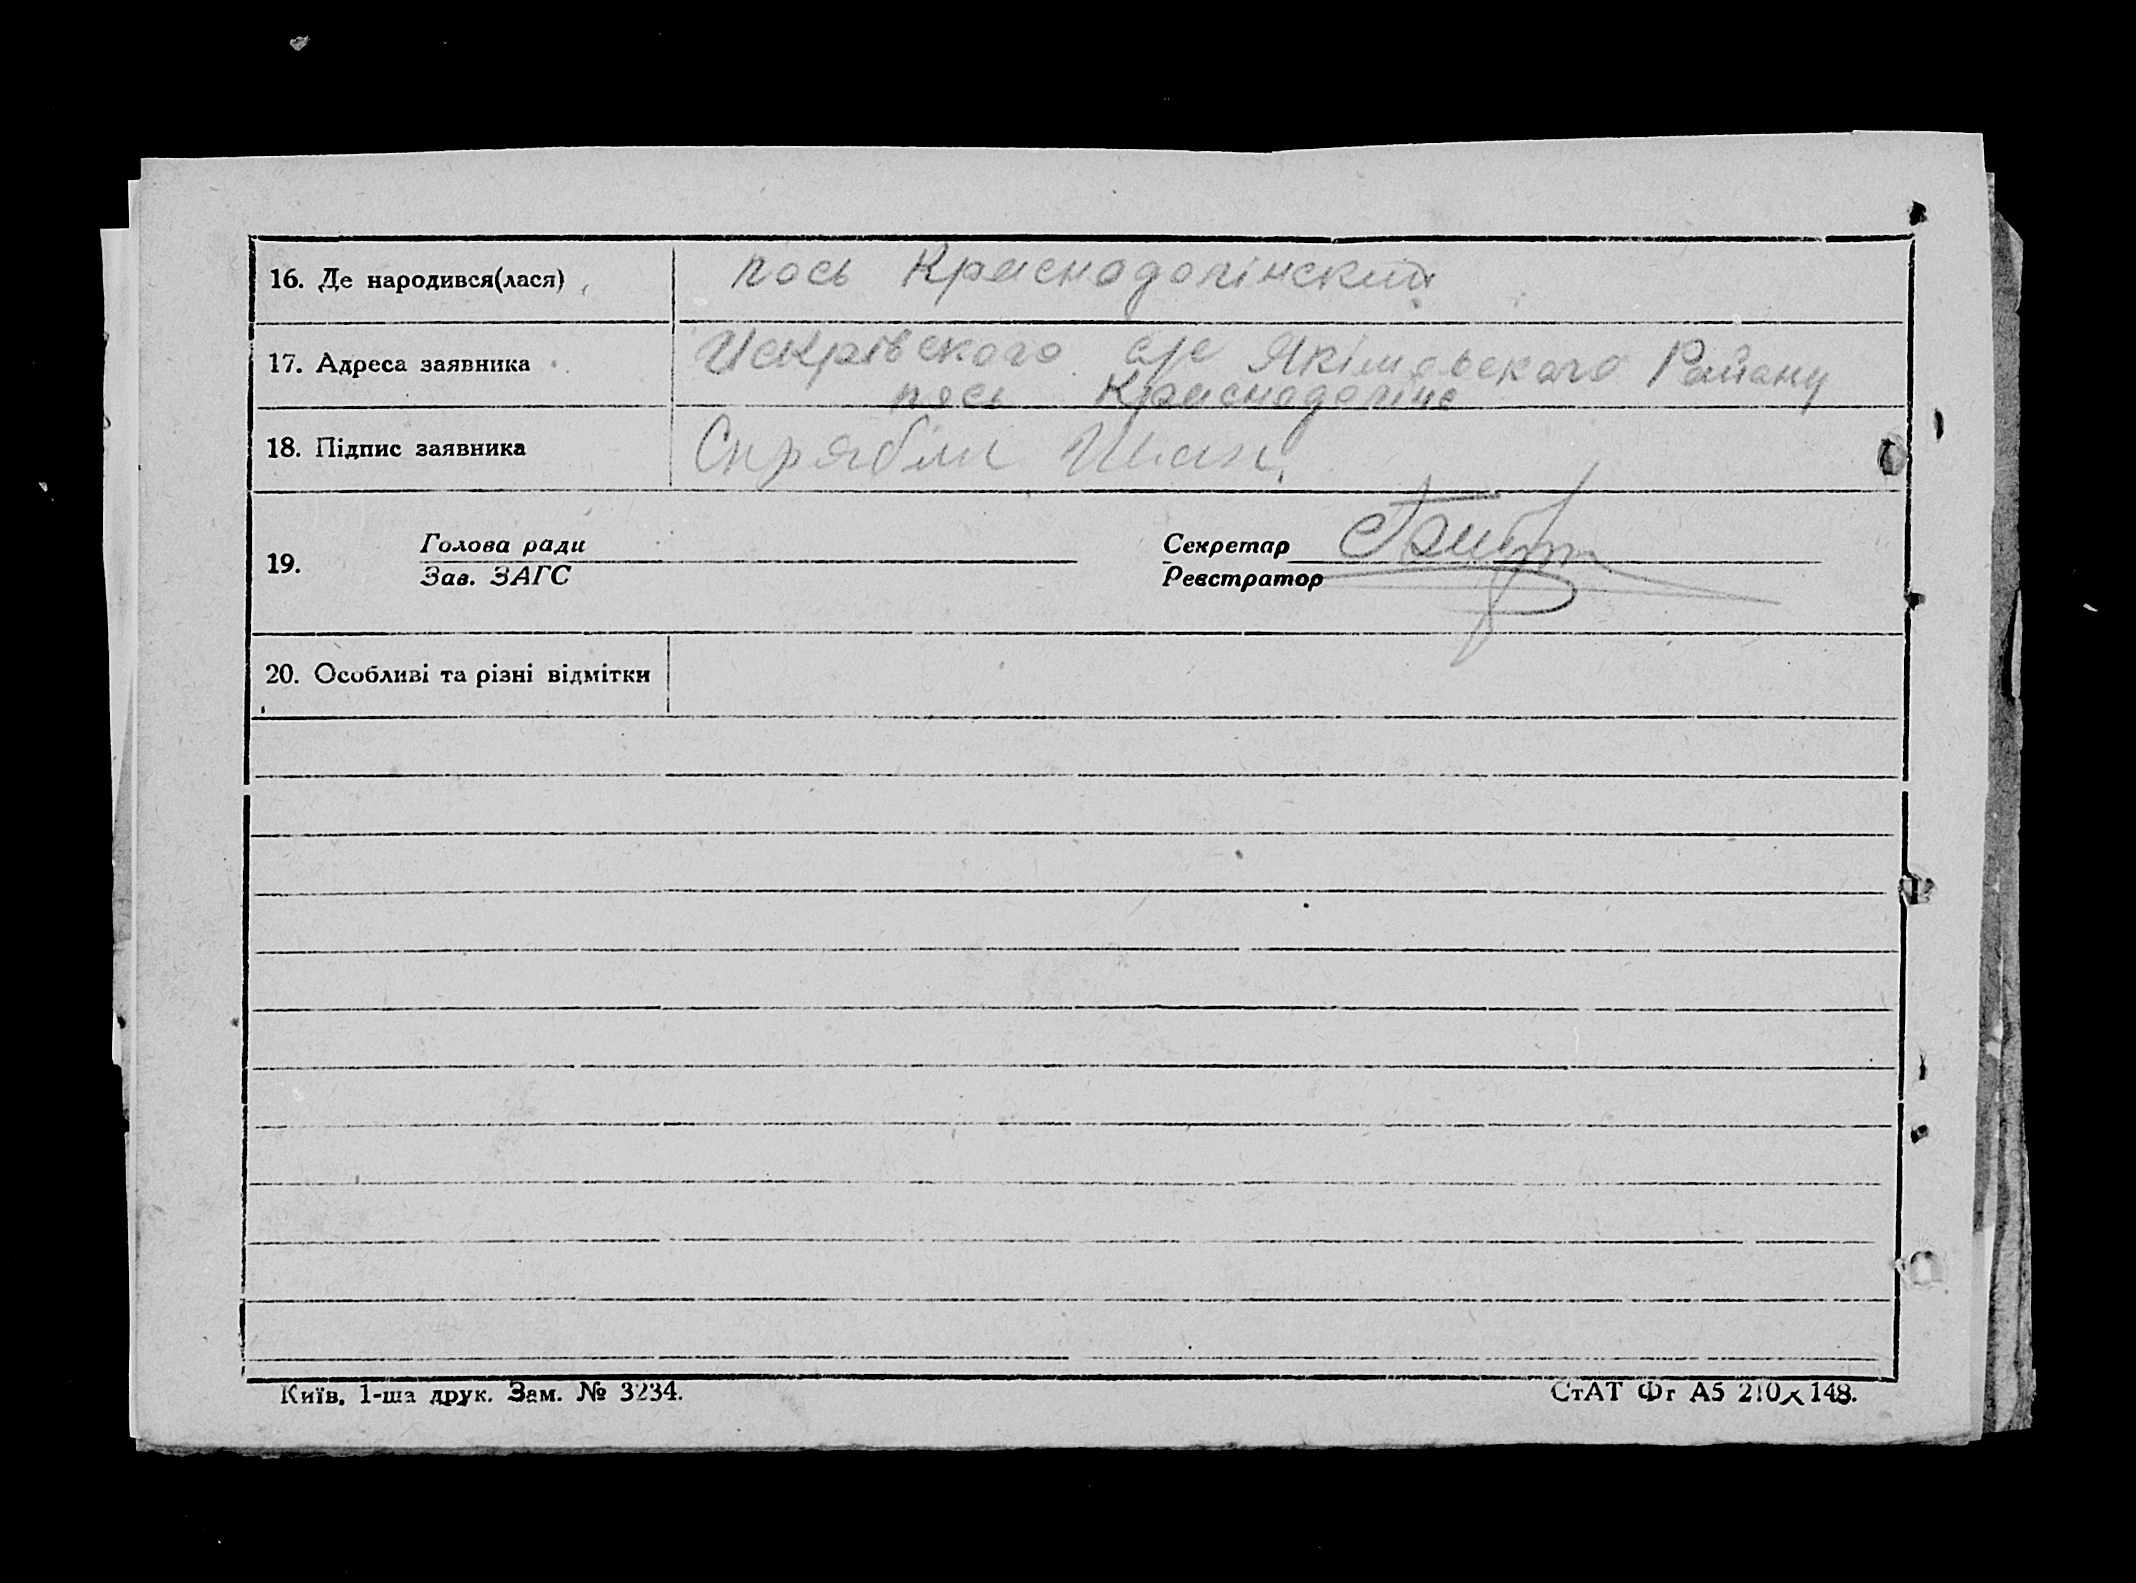 16. Де народився(лася)
пось Краснодолінский
17. Адреса заявника
Искрівского с/с Якімовского Району
пось Краснодоліно
18. Підпис заявника
Иван
19.
Голова ради
Зав. ЗАГС
Секретар
Реєстратор
20. Особливі та різні відмітки
Київ, 1-ша друк. Зам. № 3234.
СтАТ Фг А5 210×148.